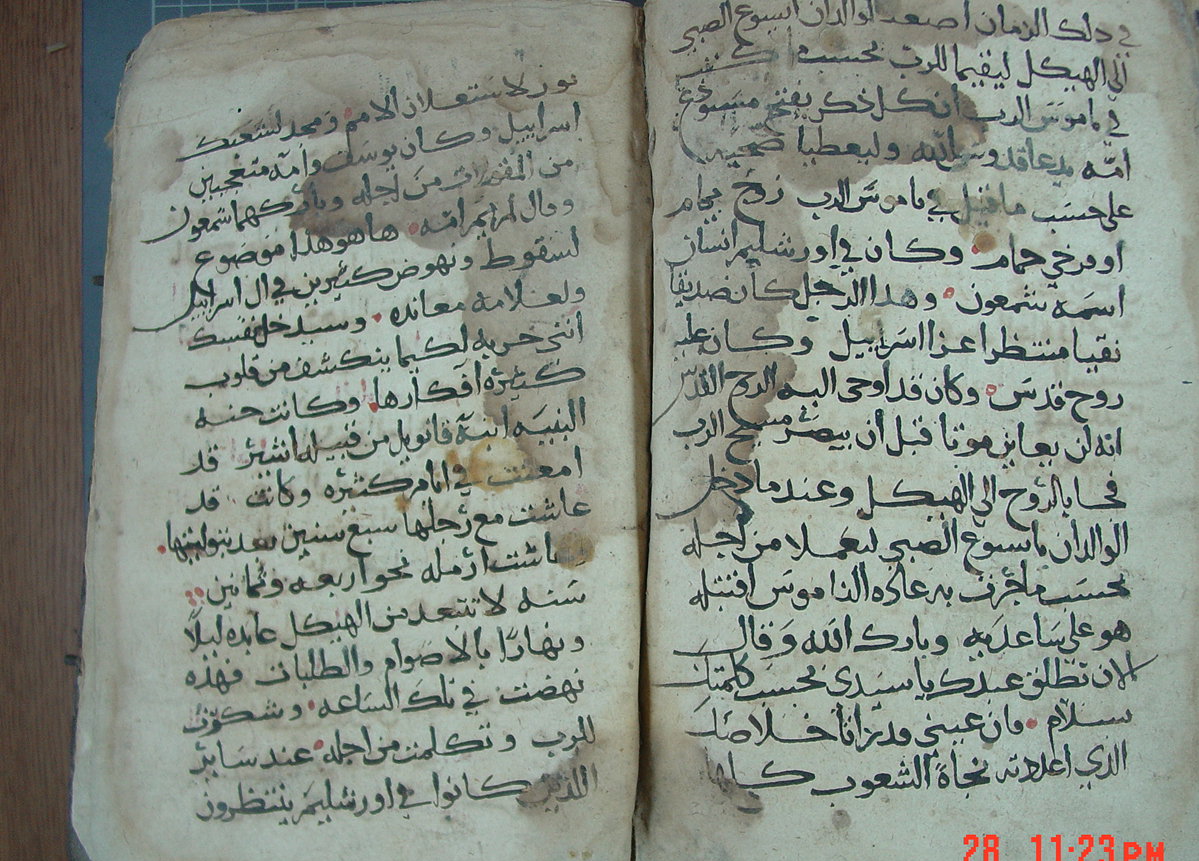 في دلك الزمان اصعد الوالدان ايسوع الصبي
الي الهيكل ليقيما للرب بحسب ما كتب
في ناموس الرب ان كل ذكر يفتح مستودع
امه يدعا قدوس الله وليعطيا ضحيه
علي حسب ما قيل في ناموس الرب زوج يمام
او فرخي حمام وكان في اورشليم انسان
اسمه شمعون وهدا الرجل كان صديقا
نقيا منتظرا عزا اسراييل وكان عليه
روح قدس وكان قد اوحي اليه الروح القدس
انه لن يعاين موتا قبل ان يبصر مسيح الرب
فجا بالروح الي الهيكل وعند ما دخل
الوالدان بايسوع الصبي ليعملا من اجله
بحسب ما جرت به عادة الناموس اقتبله
هو علي ساعديه وبارك الله وقال
الان تطلق عبدك يا سيدي بحسب كلمتك
بسلام وان عيني قد راتا خلاصك
الدي اعلاته نجاة الشعوب كلها
نور لاستعلان الامم ومجد لشعبك
اسراييل وكان يوسف وامه متعجبين
من المقولات من اجله وباركهما شمعون
وقال لمريم امه ها هو هدا موضوع
لسقوط ونهوض كثيرين في ال اسراييل
ولعلامه معانده وسيدخل نفسك
انثي حربه لكيما ينكشف من قلوب
كثيره افكارها وكانت حنه
النبيه ابنة فانويل من قبيله اشير قد
امعنت في ايام كثيره وكانت قد
عاشت مع رجلها سبع سنين بعد بتوليتها
وعاشت ارمله نحو اربعه وثمانين
سنه لا تبتعد من الهيكل عابده ليلًا
ونهارًا بالاصوام والطلبات فهذه
نهضت في تلك الساعه وشكرت
للرب وتكلمت من اجله عند ساير
اللذين كانوا في اورشليم ينتظرون
28 11:23 PM